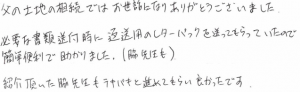 父の土地の相続ではお世話になりありがとうございました
必要な書類送付時に返送用のレターパックを送ってもらっていたので
簡単便利で助かりました。(脇先生も)
紹介頂いた脇先生もテキパキと進めてもらい良かったです。